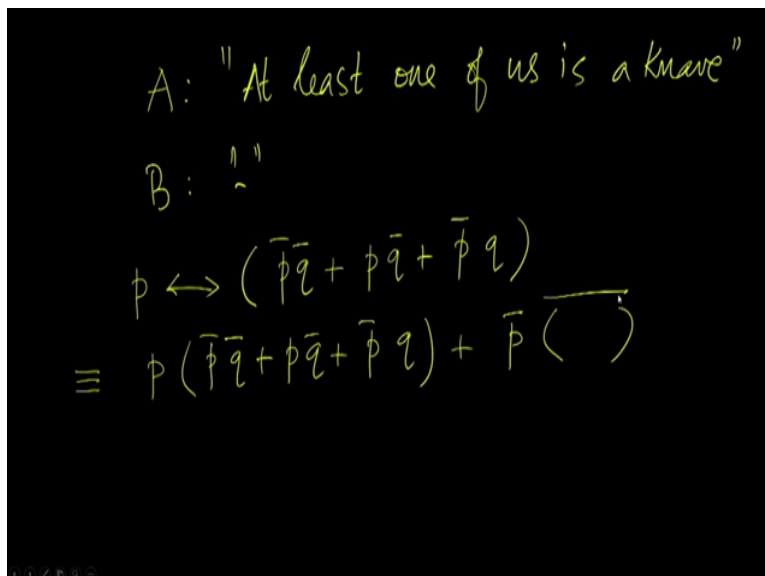 A: "At least one of us is a Knave"
B: " "
p ↔ (p̅q̅ + pq̅ + p̅q)
≡ p(p̅q̅ + pq̅ + p̅q) + p̅(‾‾‾)